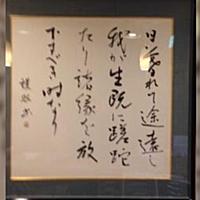 日暮れて途遠し
我が生既に蹉跎
たり諸縁を放
下すべき時なり